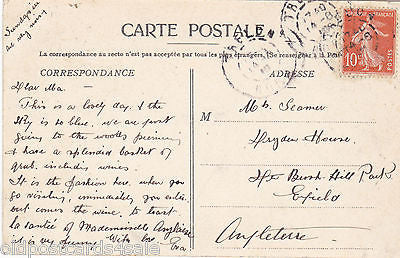 Sunday
CARTE POSTALE
La correspondance au recto n'est pas acceptée par tous les pays étrangers. (Se renseigner à la Poste
CORRESPONDANCE
ADRESSE
10
POSTES
Dear Ma.
This is a lovely day, & the
sky is so blue. We are just
going to the woods
& have a splendid basket of
grub, including wines.
It is the fashion here, when you
go visiting, immediately you enter
out comes the wine, to toast
la santée of Mademoiselle Anglaise
it is very funny. With love
Eva
M
Seamer
House
Bush Hill Park
Enfield
Angleterre
oldpostcards4sale